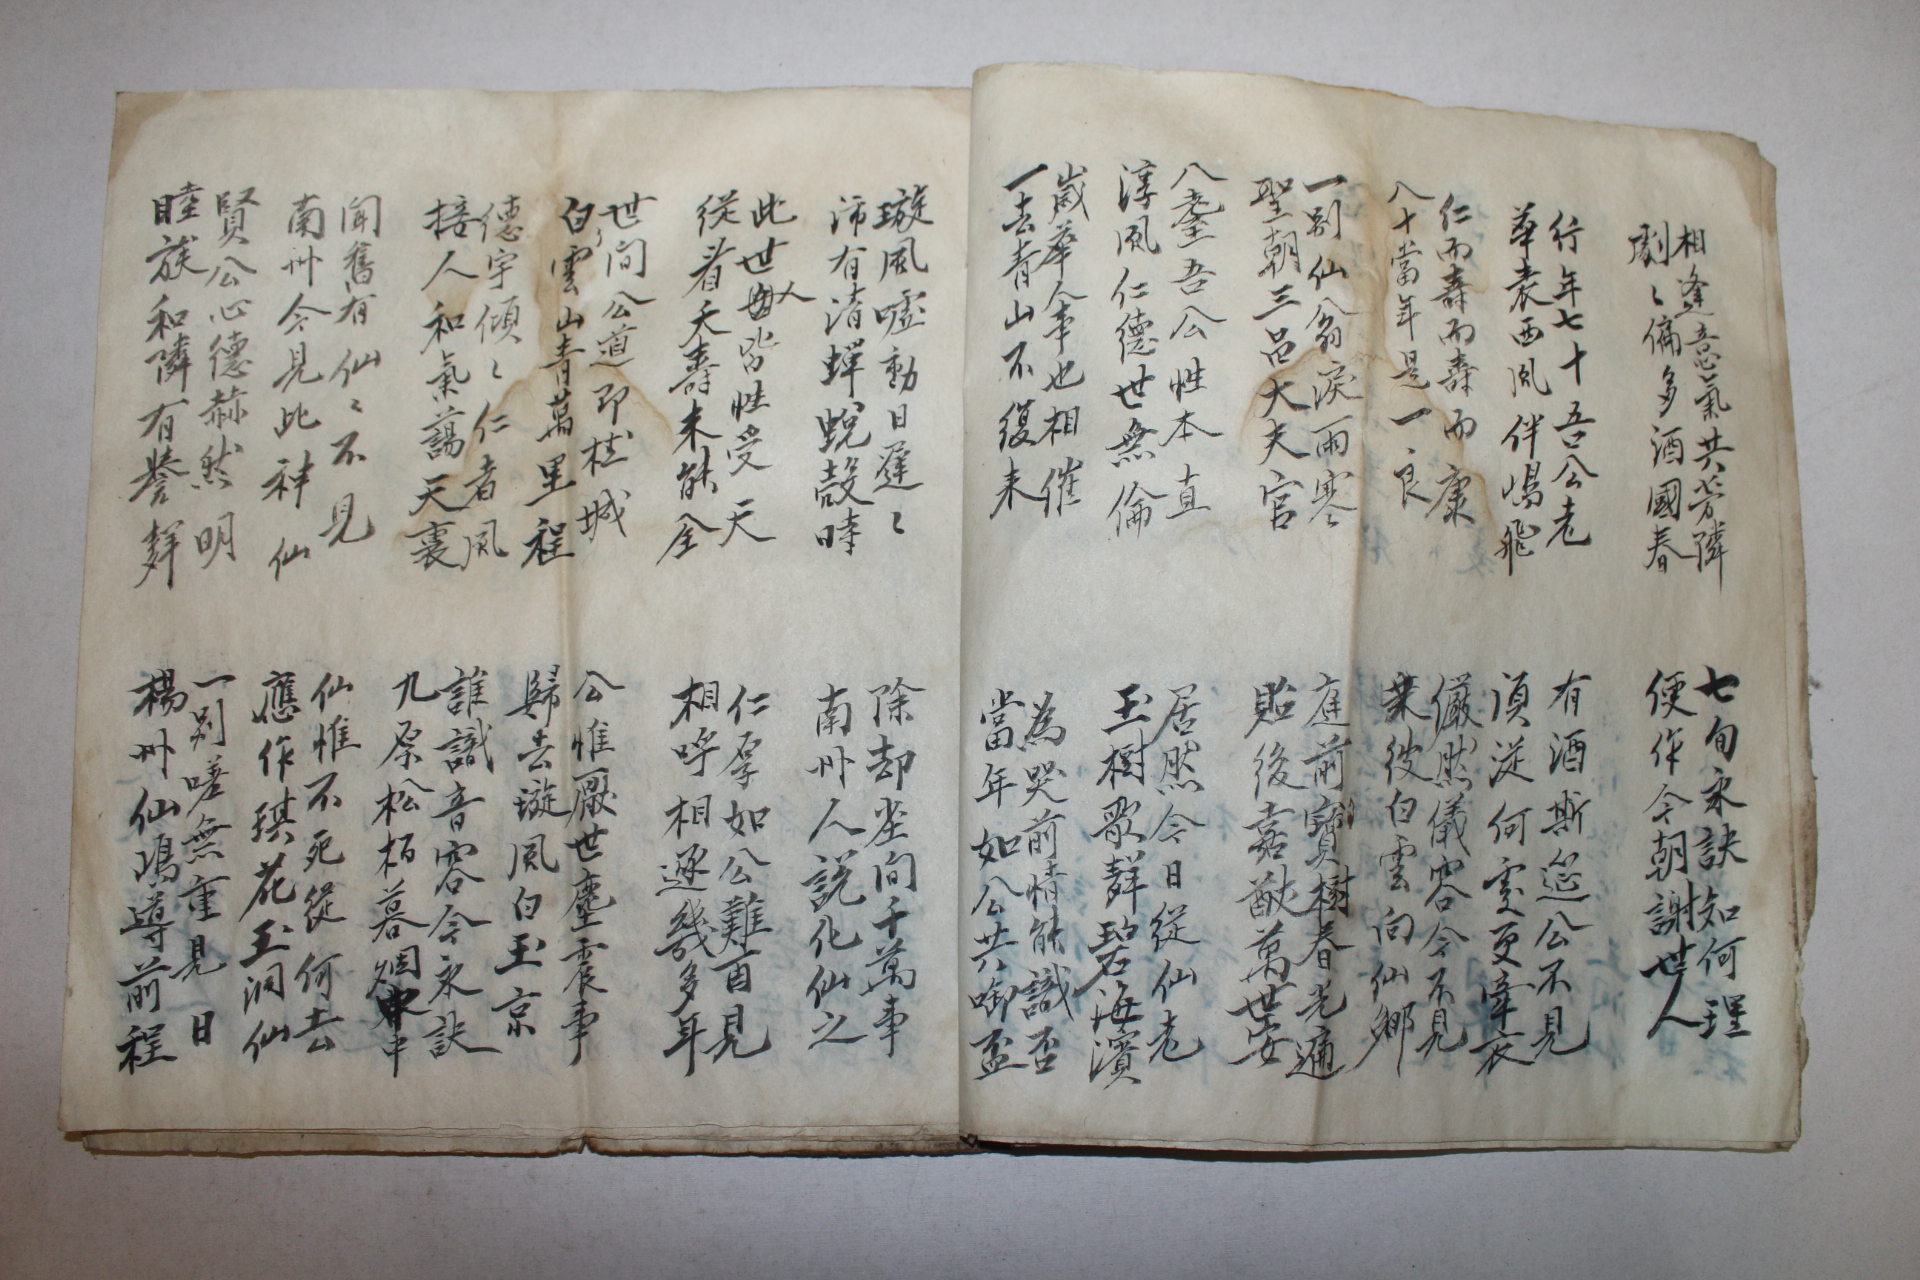 相逢意氣共芳隣
劇〻偏多酒國春
七旬永訣知何理
便作今朝謝世人
行年七十吾公老
華表西風伴鶴飛
有酒斯筵公不見
須從何處更牽衣
仁而壽而壽而康
八十當年是一良
儼然儀容今不見
乘彼白雲向仙鄉
一別仙翁淚雨寒
聖朝三品大夫官
庭前寶樹春光遍
貽後嘉猷萬世安
八耋吾公性本直
淳風仁德世無倫
居然今日從仙老
玉樹歌聲碧海濱
歲華人事也相催
一去青山不復來
為哭前情能識否
當年如公共啣盃
璇風噓動日遲〻
沛有清蟬蛻殼時
除却坐間千萬事
南州人說化仙之
此世人皆性受天
從看夭壽未能全
仁厚如公難百見
相呼相逐幾多年
世間公道即桂城
白雲山青萬里程
公惟厭世塵寰事
歸去璇風白玉京
德宇傾〻仁者風
接人和氣藹天裏
誰識音容今永訣
九原松栢暮烟中
聞舊有仙〻不見
南州今見此神仙
仙惟不死從何去
應作琪花玉洞仙
賢公心德赫然明
睦族和隣有譽聲
一別嗟無重見日
楊州仙鴻導前程